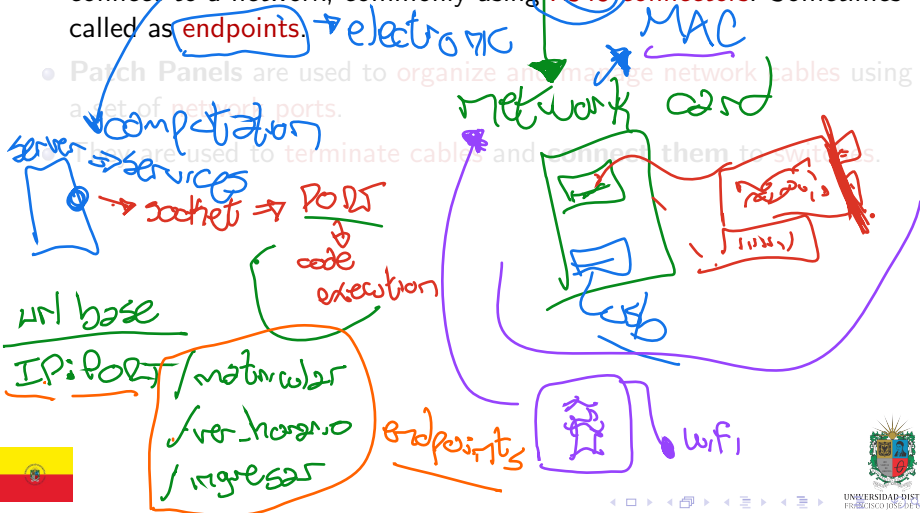 called as endpoints. → electronic
MAC
• Patch Panels are used to organize and manage network cables using
a set of network ports.
network card
computation
They are used to terminate cables and connect them to switches.
server ⇒ services
→ socket ⇒ PORT
code
execution
usb
url base
IP:PORT
/matricular
/ver_horario
/ingresar
endpoints
wifi
UNIVERSIDAD DIST